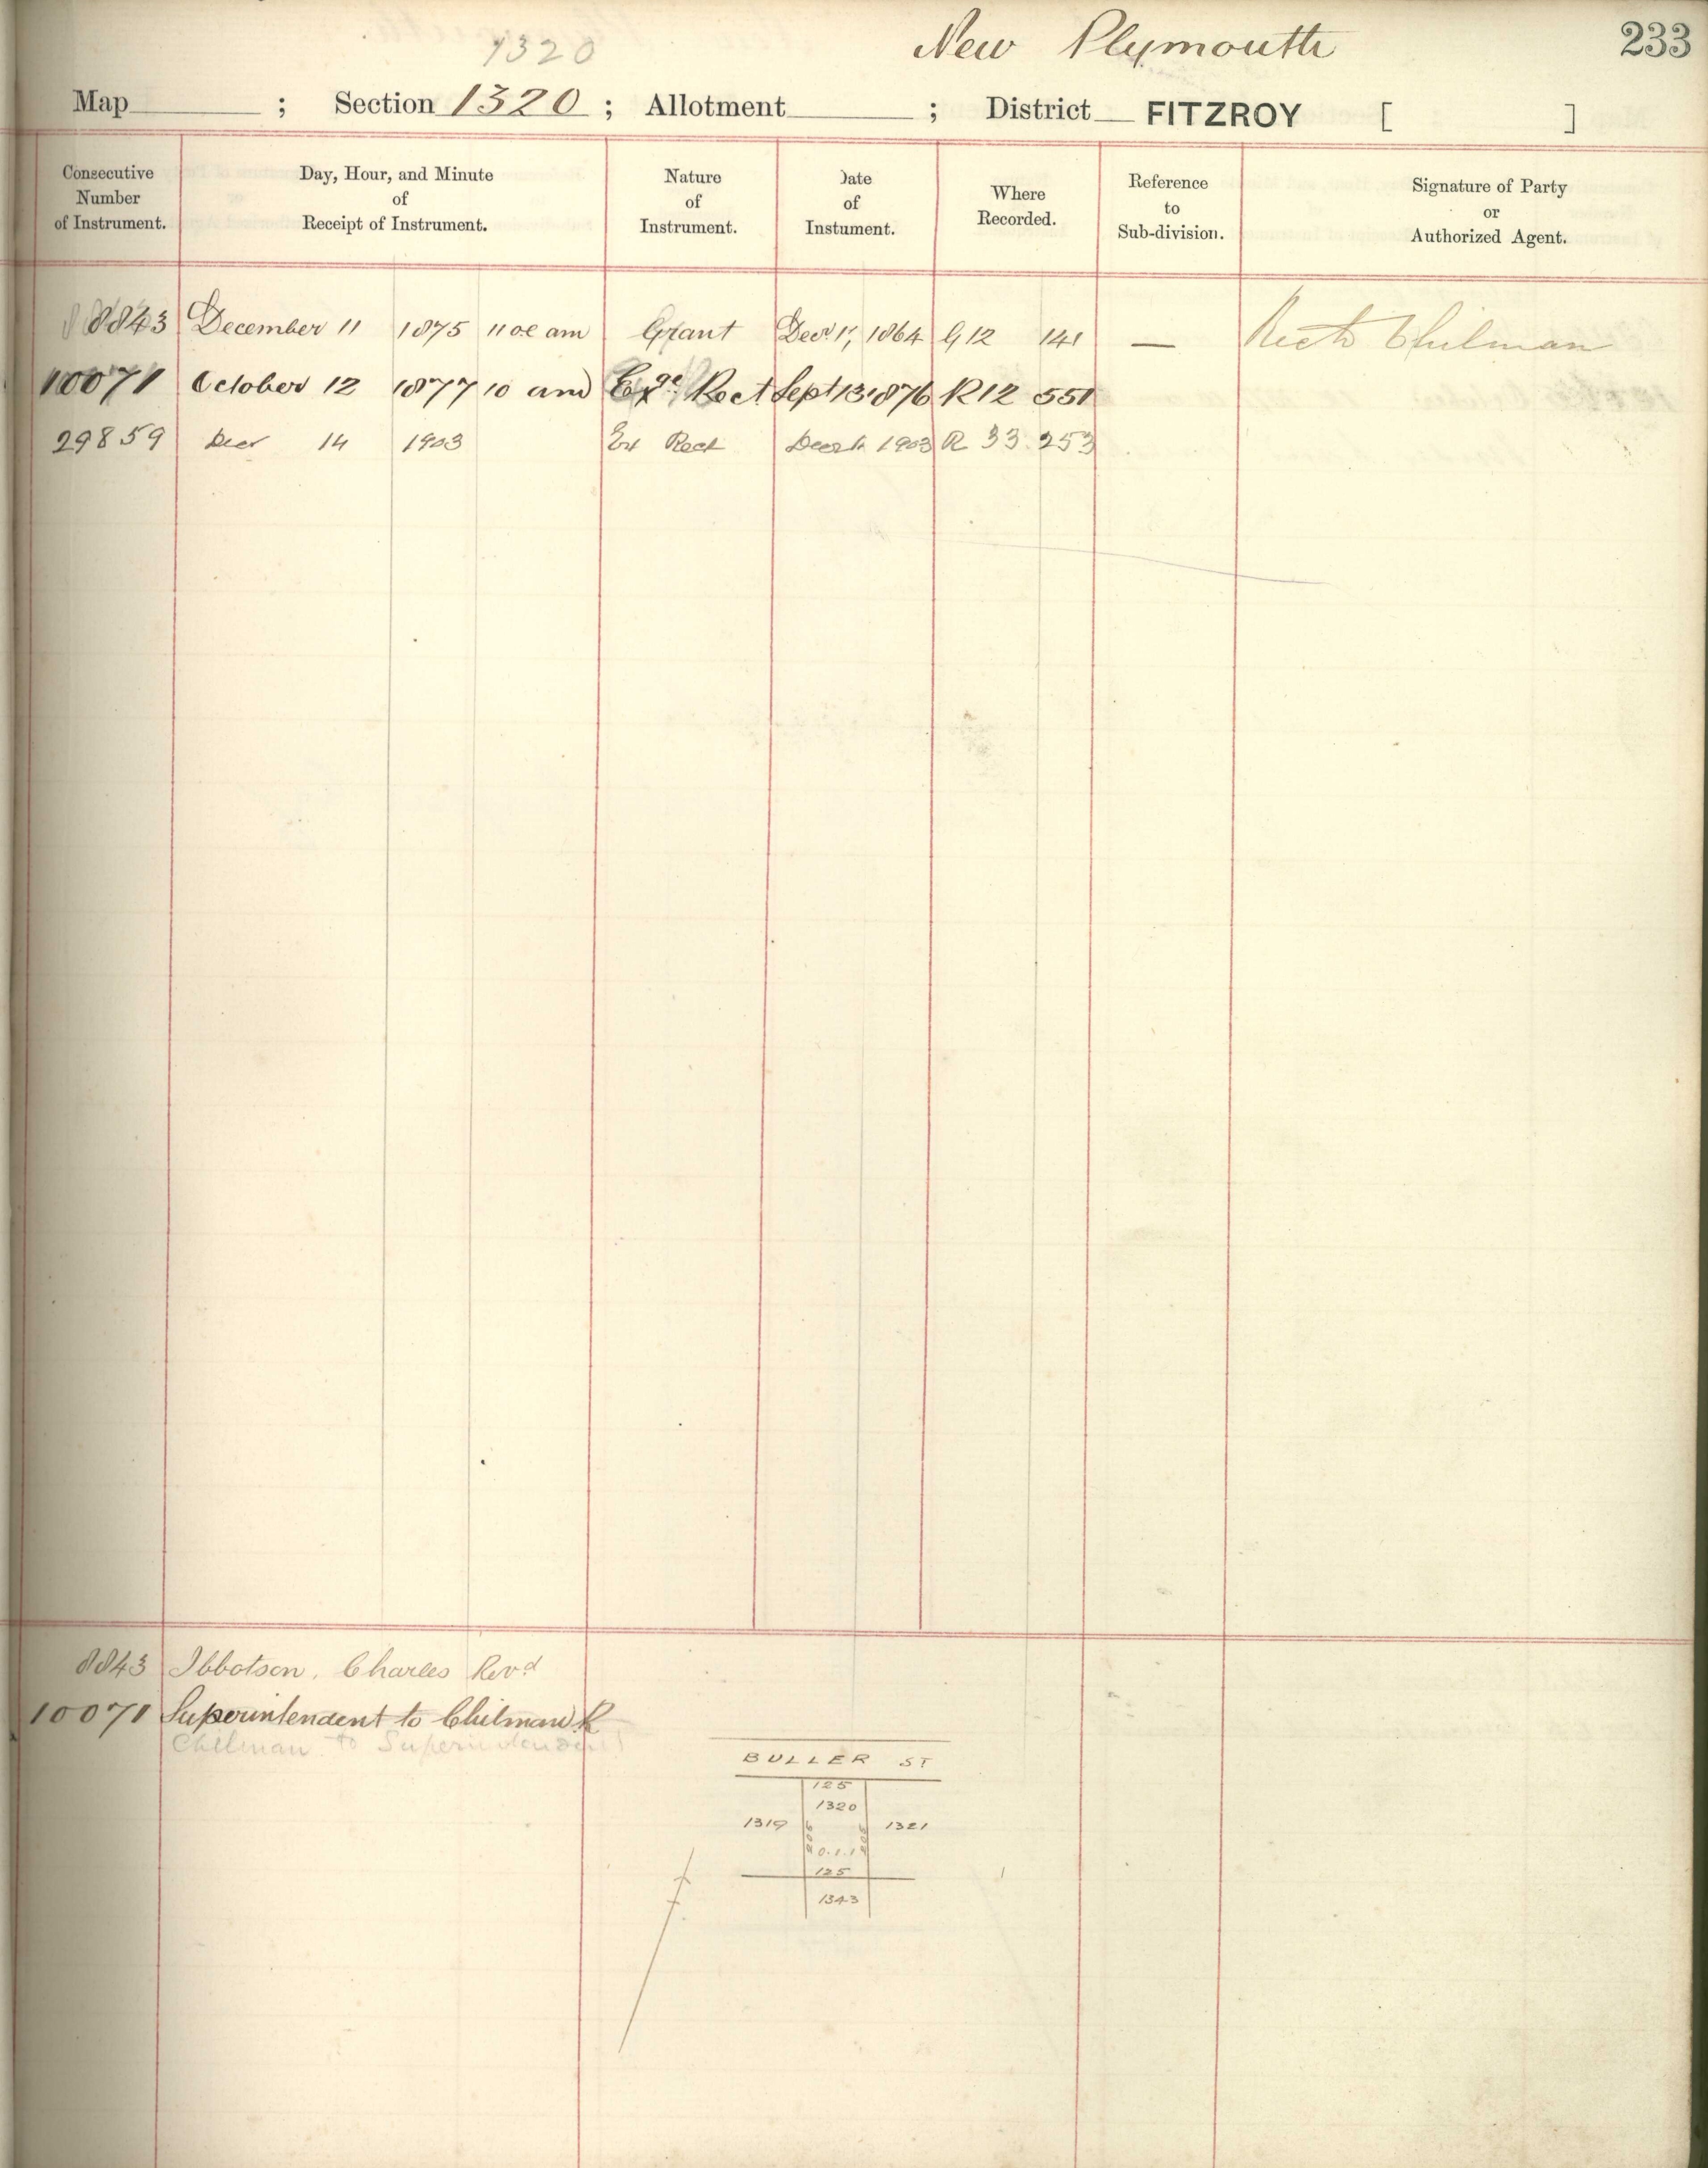 1320 New Plymouth 233
Map ; Section 1320 ; Allotment ; District FITZROY [ ]
Consecutive Number of Instrument. Day, Hour, and Minute of Receipt of Instrument. Nature of Instrument. Date of Instument. Where Recorded. Reference to Sub-division. Signature of Party or Authorized Agent.
8843 December 11 1875 11 am Grant Decr 1, 1864 G 12 141 — Richd Chilman
10071 October 12 1877 10 am Rect Sept 13 1876 R12 551
29859 Decr 14 1903 Ex Rect 1903 R 33 253
8843 Ibbotson, Charles Revd
10071 Superintendent to Chilman R
Chilman to Superintendent
BULLER ST
125
1320
1319 1321
0.1.1
125
1343